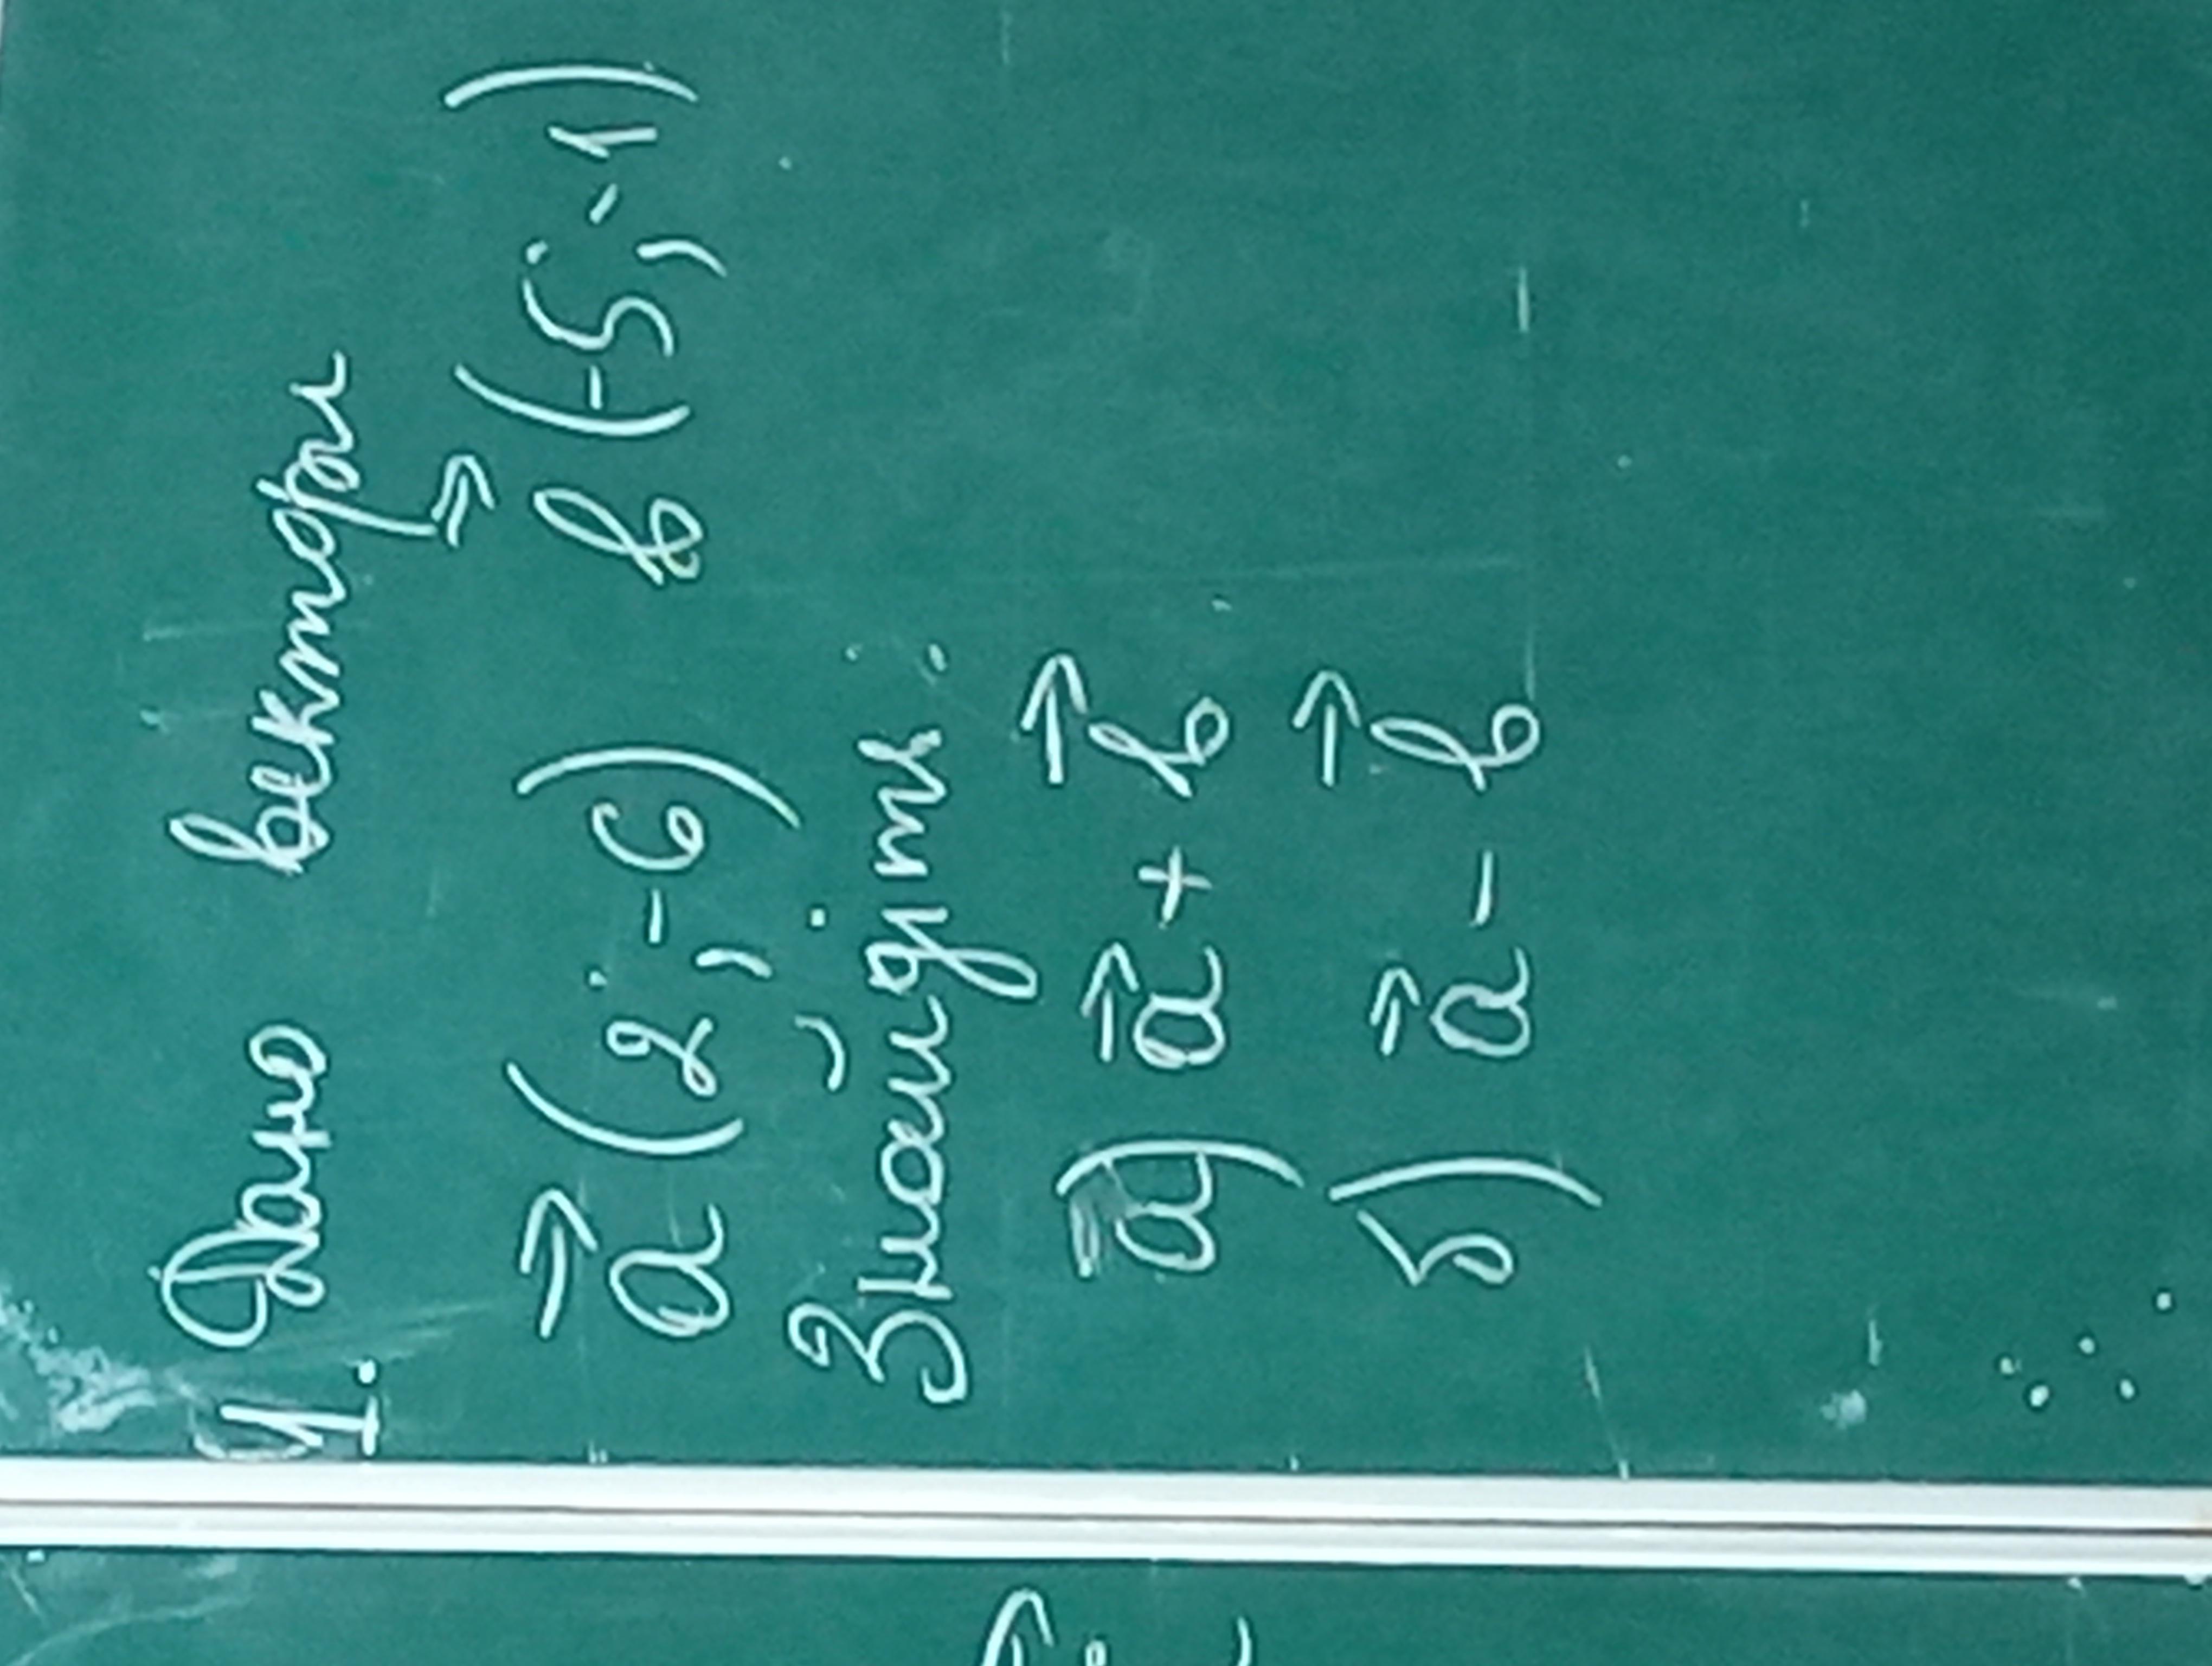 1. Дано вектори
a⃗ (2; -6) b⃗ (-5; -1)
Знайдіть:
а) a⃗ + b⃗
б) a⃗ - b⃗